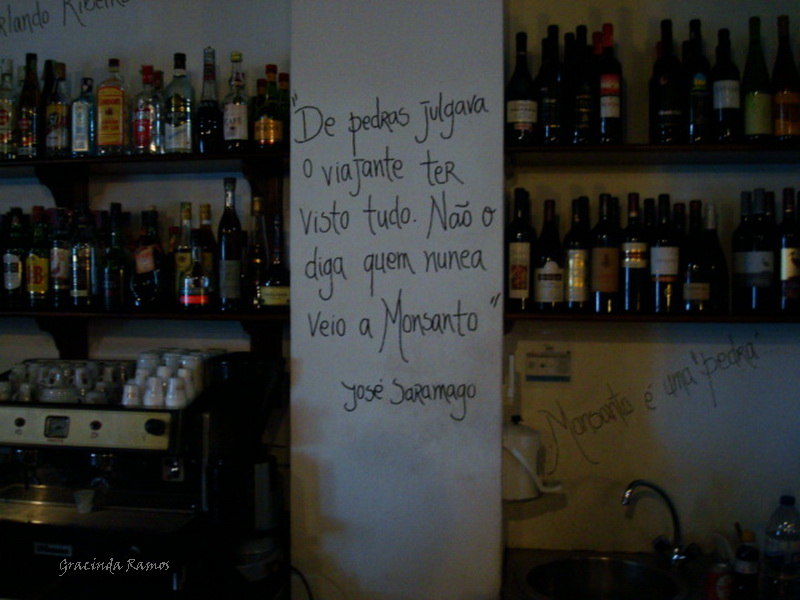 Orlando Ribeiro
"De pedras julgava
o viajante ter
visto tudo. Não o
diga quem nunca
veio a Monsanto"
José Saramago
Monsanto é uma "pedra"
Gracinda Ramos